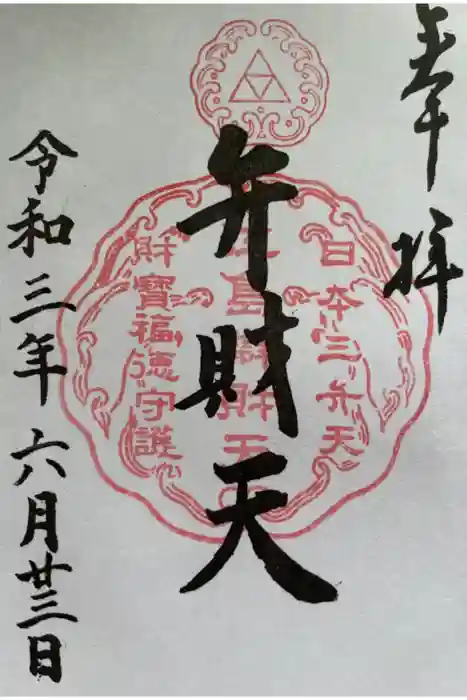 奉拝
日本三弁天
江島辯財天
財寶福徳守護
弁財天
令和三年六月廿三日